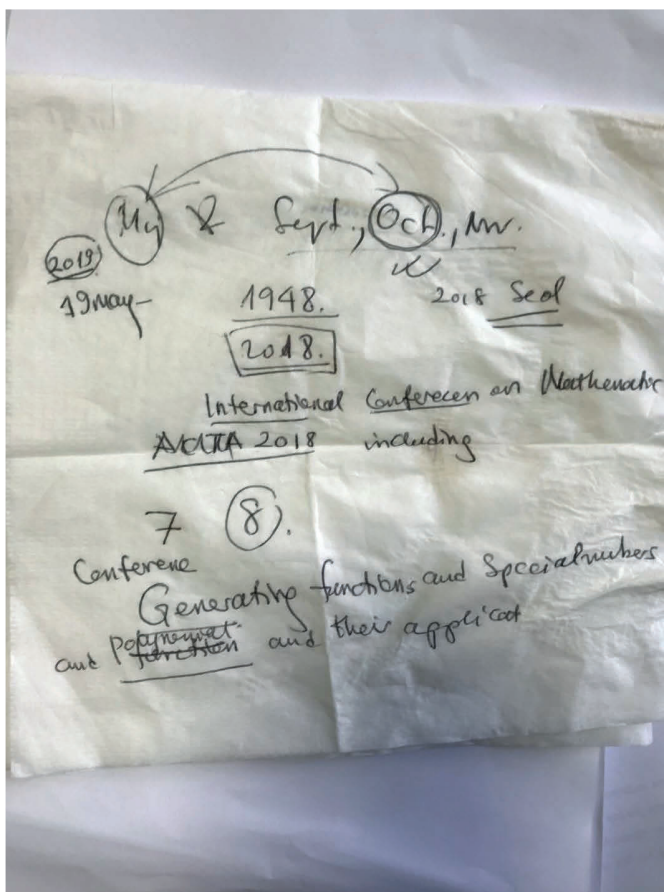 May & Sept., Oct., Nov.
2019
19 May-
1948.
2018 Seol
2018.
International Conferecen on Mathematic
2018 including
7 8.
Conferene
Generating functions and Specialnumbers
and polynomial function and their applicat